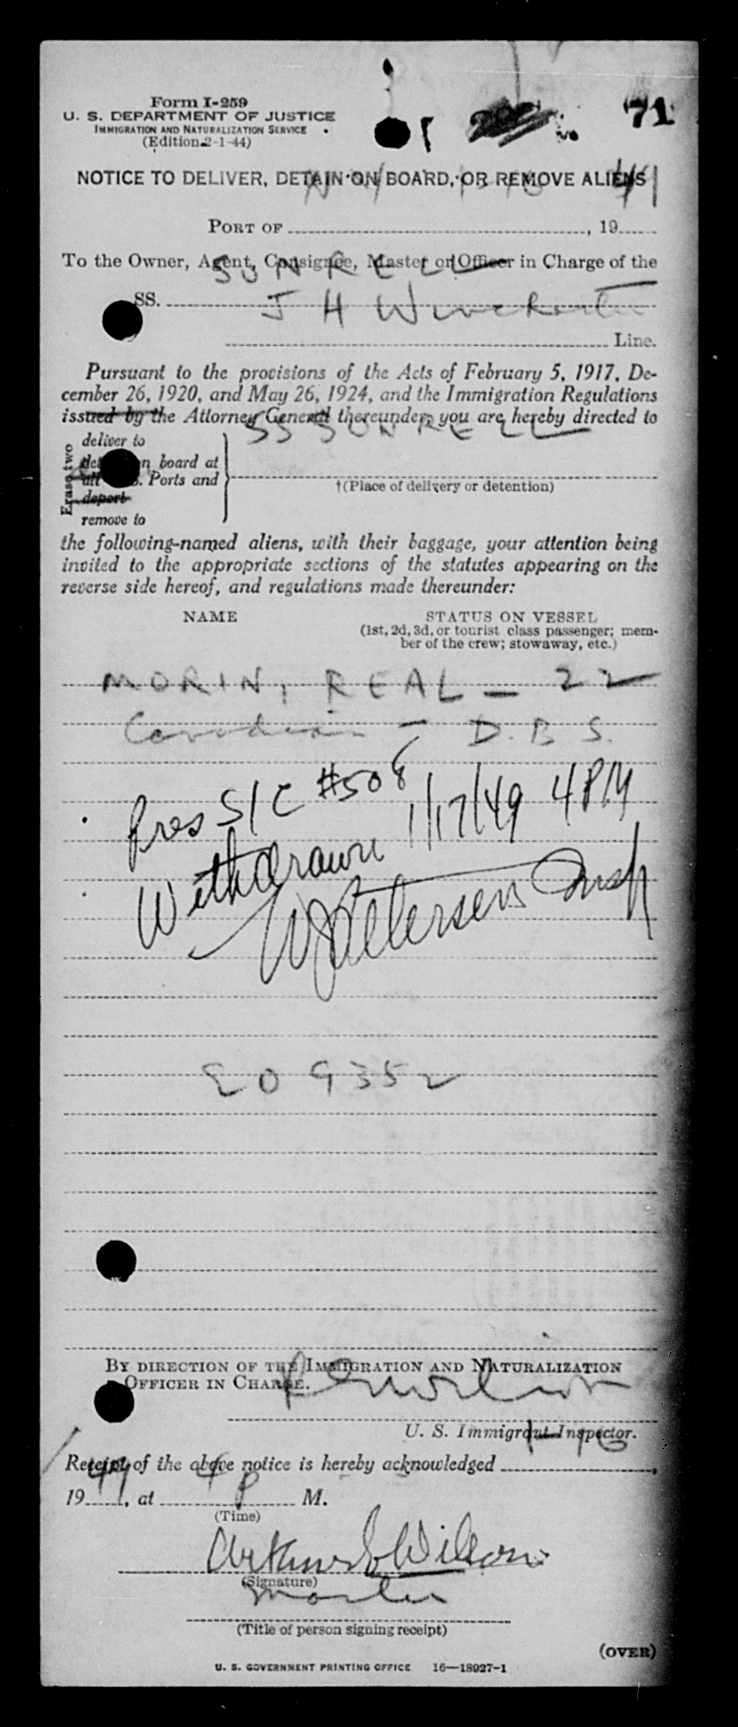 Form I-259
U. S. DEPARTMENT OF JUSTICE
IMMIGRATION AND NATURALIZATION SERVICE
(Edition 2-1-44)
71
NOTICE TO DELIVER, DETAIN ON BOARD, OR REMOVE ALIENS
N Y 1-16 49
PORT OF , 19
To the Owner, Agent, Consignee, Master or Officer in Charge of the
SUNRELL
SS. J H Winchester
Line.
Pursuant to the provisions of the Acts of February 5, 1917, De-
cember 26, 1920, and May 26, 1924, and the Immigration Regulations
issued by the Attorney General thereunder, you are hereby directed to
SS SUNRELL
Erase two
deliver to
detain on board at
all U.S. Ports and
deport
remove to
†(Place of delivery or detention)
the following-named aliens, with their baggage, your attention being
invited to the appropriate sections of the statutes appearing on the
reverse side hereof, and regulations made thereunder:
NAME STATUS ON VESSEL
(1st, 2d, 3d, or tourist class passenger; mem-
ber of the crew; stowaway, etc.)
MORIN, REAL - 22
Canadian - D.B.S.
Pres S/C #508
Withdrawn 1/17/49 4 PM
W Petersen Insp
E09352
BY DIRECTION OF THE IMMIGRATION AND NATURALIZATION
OFFICER IN CHARGE.
U. S. Immigrant Inspector.
1-16
Receipt of the above notice is hereby acknowledged ,
1949, at 4 P M.
(Time)
Wilson
(Signature)
Master
(Title of person signing receipt)
(OVER)
U. S. GOVERNMENT PRINTING OFFICE 16—18927-1